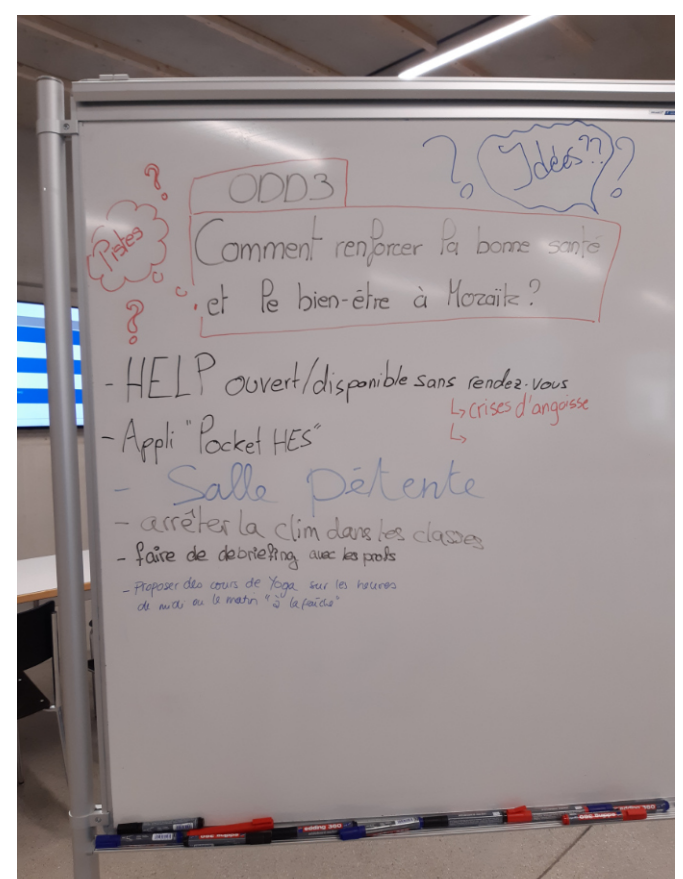 Idées??
Pistes
ODD3
Comment renforcer la bonne santé
et le bien-être à Mozaïk?
- HELP ouvert/disponible sans rendez-vous
↳ crises d'angoisse
↳
- Appli "Pocket HES"
- Salle Détente
- arrêter la clim dans les classes
- faire de debriefing avec les profs
- Proposer des cours de Yoga sur les heures
de midi ou le matin "à la fraîche"
edding 360
edding 360